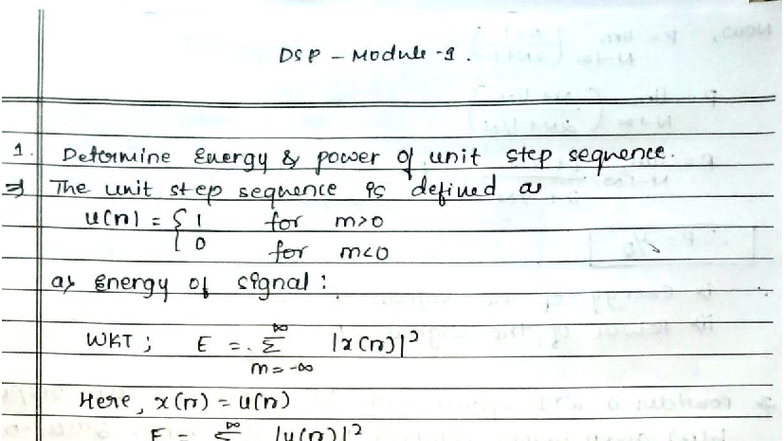 DSP - Module -1.
1. Determine Energy & power of unit step sequence.
⇒ The unit step sequence is defined as
u(n) = { 1 for n>0
0 for n<0
a) Energy of signal :
WKT ; E = ∞ Σ n=-∞ |x(n)|²
Here, x(n) = u(n)
E = ∞ Σ |u(n)|²